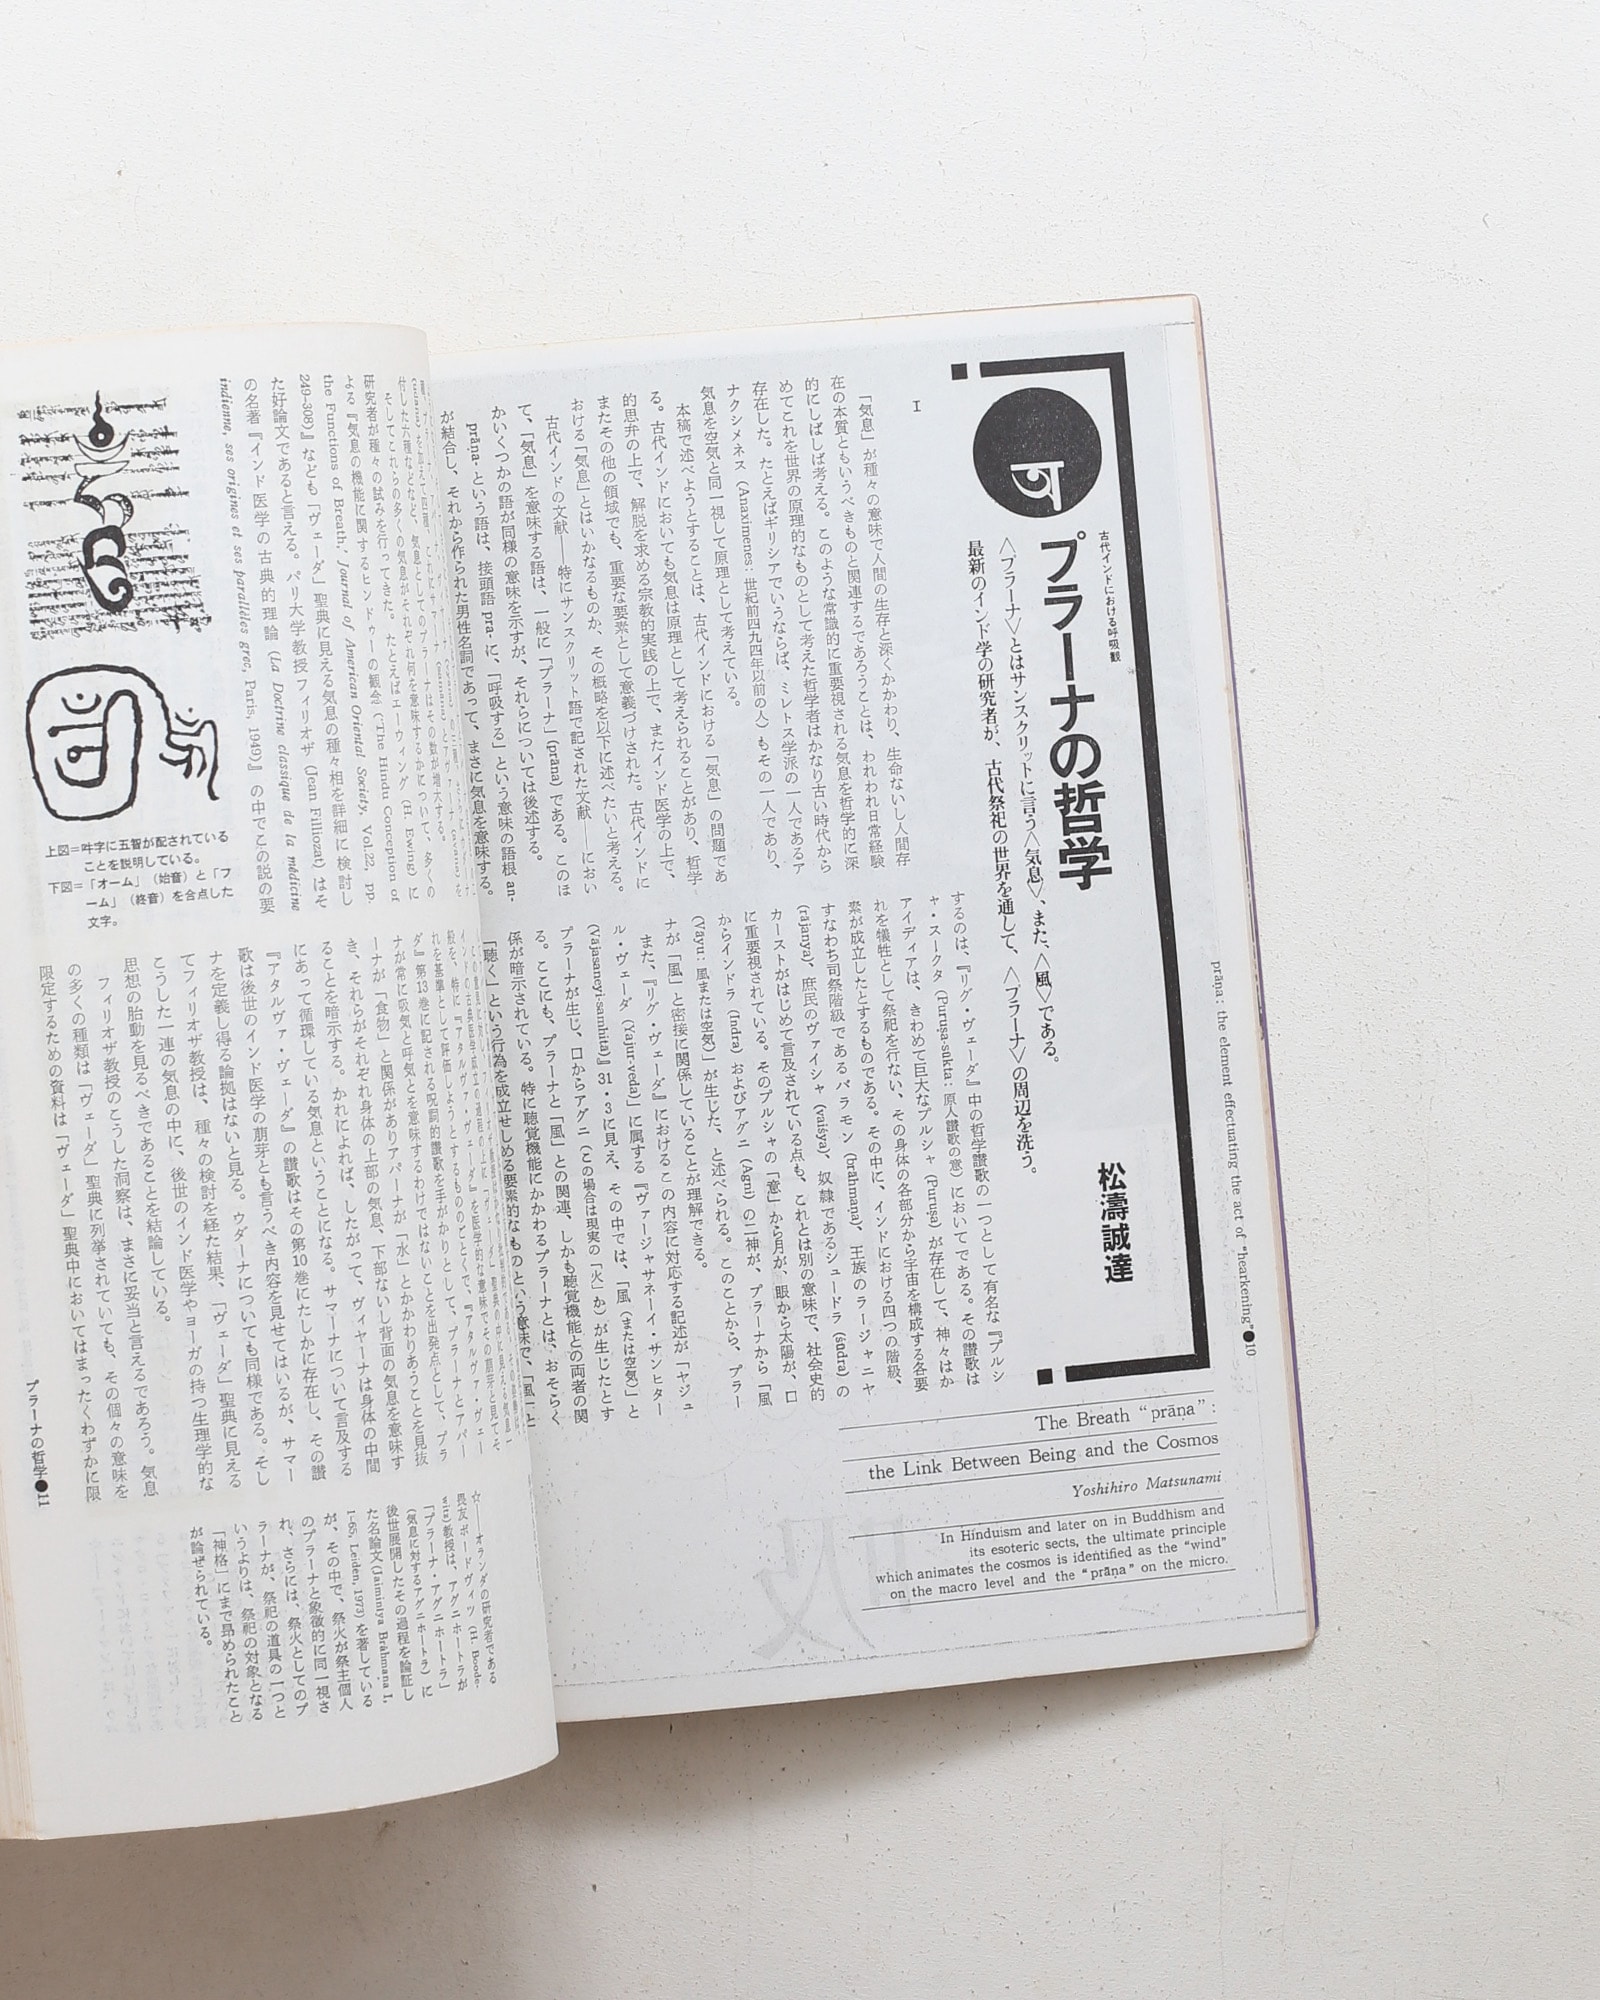 prāṇa: the element effectuating the act of "hearkening"●10
古代インドにおける呼吸観
プラーナの哲学
松濤誠達
〈プラーナ〉とはサンスクリットに言う〈気息〉、また、〈風〉である。
最新のインド学の研究者が、古代祭祀の世界を通して、〈プラーナ〉の周辺を洗う。
The Breath “prāṇa”:
the Link Between Being and the Cosmos
Yoshihiro Matsunami
In Hinduism and later on in Buddhism and
its esoteric sects, the ultimate principle
which animates the cosmos is identified as the “wind”
on the macro level and the “prāṇa” on the micro.
I
「気息」が種々の意味で人間の生存と深くかかわり、生命ないし人間存
在の本質ともいうべきものと関連するであろうことは、われわれ日常経験
的にしばしば考える。このような常識的に重要視される気息を哲学的に深
めてこれを世界の原理的なものとして考えた哲学者はかなり古い時代から
存在した。たとえばギリシアでいうならば、ミレトス学派の一人であるア
ナクシメネス（Anaximenes：世紀前四九四年以前の人）もその一人であり、
気息を空気と同一視して原理として考えている。
本稿で述べようとすることは、古代インドにおける「気息」の問題であ
る。古代インドにおいても気息は原理として考えられることがあり、哲学
的思弁の上で、解脱を求める宗教的実践の上で、またインド医学の上で、
またその他の領域でも、重要な要素として意義づけされた。古代インドに
おける「気息」とはいかなるものか、その概略を以下に述べたいと考える。
古代インドの文献――特にサンスクリット語で記された文献――におい
て、「気息」を意味する語は、一般に「プラーナ」（prāṇa）である。このほ
かいくつかの語が同様の意味を示すが、それらについては後述する。
prāṇa- という語は、接頭語 pra- に、「呼吸する」という意味の語根 an-
が結合し、それから作られた男性名詞であって、まさに気息を意味する。
するのは、『リグ・ヴェーダ』中の哲学讃歌の一つとして有名な『プルシ
ャ・スークタ（Puruṣa-sūkta：原人讃歌の意）においてである。その讃歌は
アイディアは、きわめて巨大なプルシャ（Puruṣa）が存在して、神々はか
れを犠牲として祭祀を行ない、その身体の各部分から宇宙を構成する各要
素が成立したとするものである。その中に、インドにおける四つの階級、
すなわち司祭階級であるバラモン（brāhmaṇa）、王族のラージャニヤ
（rājanya）、庶民のヴァイシャ（vaiśya）、奴隷であるシュードラ（śūdra）の
カーストがはじめて言及されている点も、これとは別の意味で、社会史的
に重要視されている。そのプルシャの「意」から月が、眼から太陽が、口
からインドラ（Indra）およびアグニ（Agni）の二神が、プラーナから「風
（Vāyu：風または空気）」が生じた、と述べられる。このことから、プラー
ナが「風」と密接に関係していることが理解できる。
また、『リグ・ヴェーダ』におけるこの内容に対応する記述が「ヤジュ
ル・ヴェーダ（Yajur-veda）」に属する『ヴァージャサネーイ・サンヒター
（Vājasaneyi-saṃhitā）』31・3に見え、その中では、「風（または空気）」と
プラーナが生じ、口からアグニ（この場合は現実の「火」か）が生じたとす
る。ここにも、プラーナと「風」との関連、しかも聴覚機能との両者の関
係が暗示されている。特に聴覚機能にかかわるプラーナとは、おそらく
「聴く」という行為を成立せしめる要素的なものという意味で、「風」と
付した六種などなど、気息としてのプラーナはその数が増大する。
そしてこれらの多くの気息がそれぞれ何を意味するかについて、多くの
研究者が種々の試みを行ってきた。たとえばエーウィング（H. Ewing）に
よる『気息の機能に関するヒンドゥーの観念（'The Hindu Conception of
the Functions of Breath,' Journal of American Oriental Society, Vol.22, pp.
249-308）』なども「ヴェーダ」聖典に見える気息の種々相を詳細に検討し
た好論文であると言える。パリ大学教授フィリオザ（Jean Filliozat）はそ
の名著『インド医学の古典的理論（La Doctrine classique de la médicine
indienne, ses origins et ses parallèles grec, Paris, 1949）』の中でこの説の要
上図＝吽字に五智が配されている
ことを説明している。
下図＝「オーム」（始音）と「フ
ーム」（終音）を合点した
文字。
般を、特に『アタルヴァ・ヴェーダ』を医学的な意味でその萌芽と見てそ
れを基準として評価しようとするもののごとくで、『アタルヴァ・ヴェー
ダ』第13巻に記される呪詞的讃歌を手がかりとして、プラーナとアパー
ナが常に吸気と呼気とを意味するわけではないことを出発点として、プラ
ーナが「食物」と関係がありアパーナが「水」とかかわりあうことを見抜
き、それらがそれぞれ身体の上部の気息、下部ないし背面の気息を意味す
ることを暗示する。かれによれば、したがって、ヴィヤーナは身体の中間
にあって循環している気息ということになる。サマーナについて言及する
『アタルヴァ・ヴェーダ』の讃歌はその第10巻にたしかに存在し、その讃
歌は後世のインド医学の萠芽とも言うべき内容を見せてはいるが、サマー
ナを定義し得る論拠はないと見る。ウダーナについても同様である。そし
てフィリオザ教授は、種々の検討を経た結果、「ヴェーダ」聖典に見える
こうした一連の気息の中に、後世のインド医学やヨーガの持つ生理学的な
思想の胎動を見るべきであることを結論している。
フィリオザ教授のこうした洞察は、まさに妥当と言えるであろう。気息
の多くの種類は「ヴェーダ」聖典に列挙されていても、その個々の意味を
限定するための資料は「ヴェーダ」聖典中においてはまったくわずかに限
☆――オランダの研究者である
畏友ボードヴィツ（H. Bode-
witz）教授は、アグニホートラが
「プラーナ・アグニホートラ」
（気息に対するアグニホートラ）に
後世展開したその過程を論証し
た名論文（Jaiminīya Brāhmaṇa I,
1-65, Leiden, 1973）を著している
が、その中で、祭火が祭主個人
のプラーナと象徴的に同一視さ
れ、さらには、祭火としてのプ
ラーナが、祭祀の道具の一つと
いうよりは、祭祀の対象となる
「神格」にまで昂められたこと
が論ぜられている。
プラーナの哲学●11